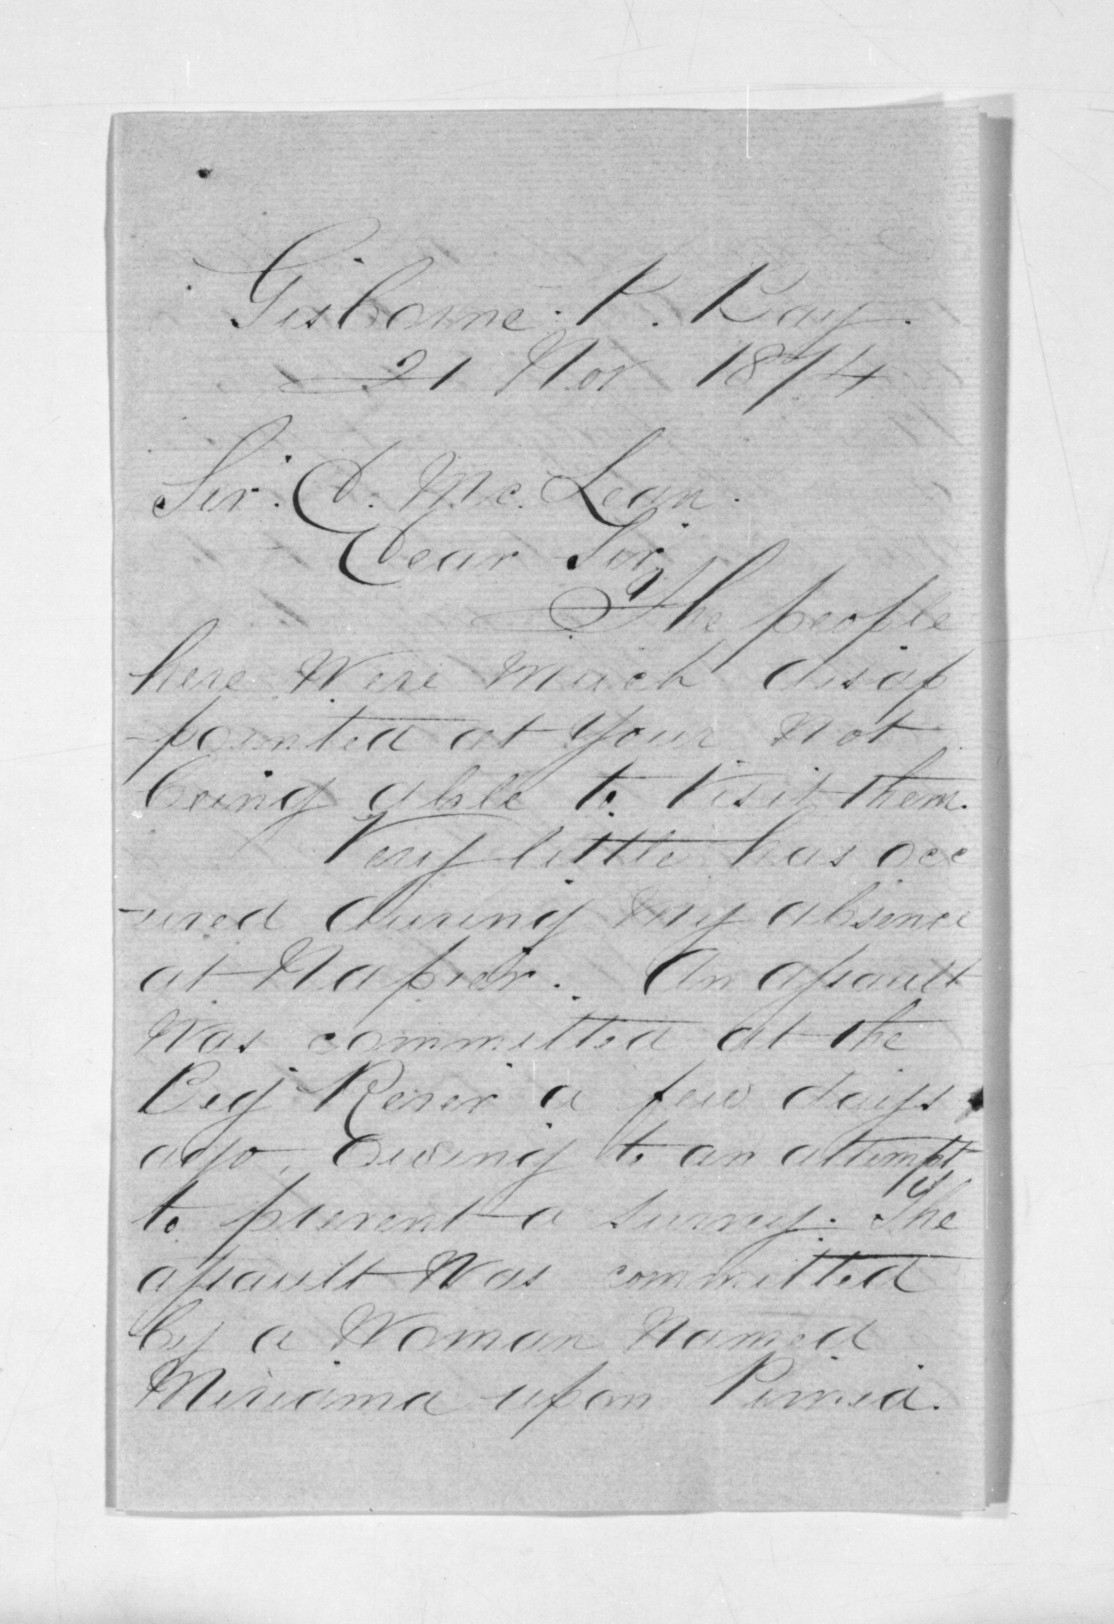 Gisborne. P. Bay.
21 Nov 1874
Sir. D. Mc. Lean.
Dear Sir,
The people
here Were Much disap
-pointed at Your Not
being able to Visit them.
Very little has occ
-ured during my absence
at Napier. An assault
Was committed at the
Big River a few days
ago, Owing to an attempt
to prevent a survey. The
assault Was committed
by a Woman Named
Miriama upon